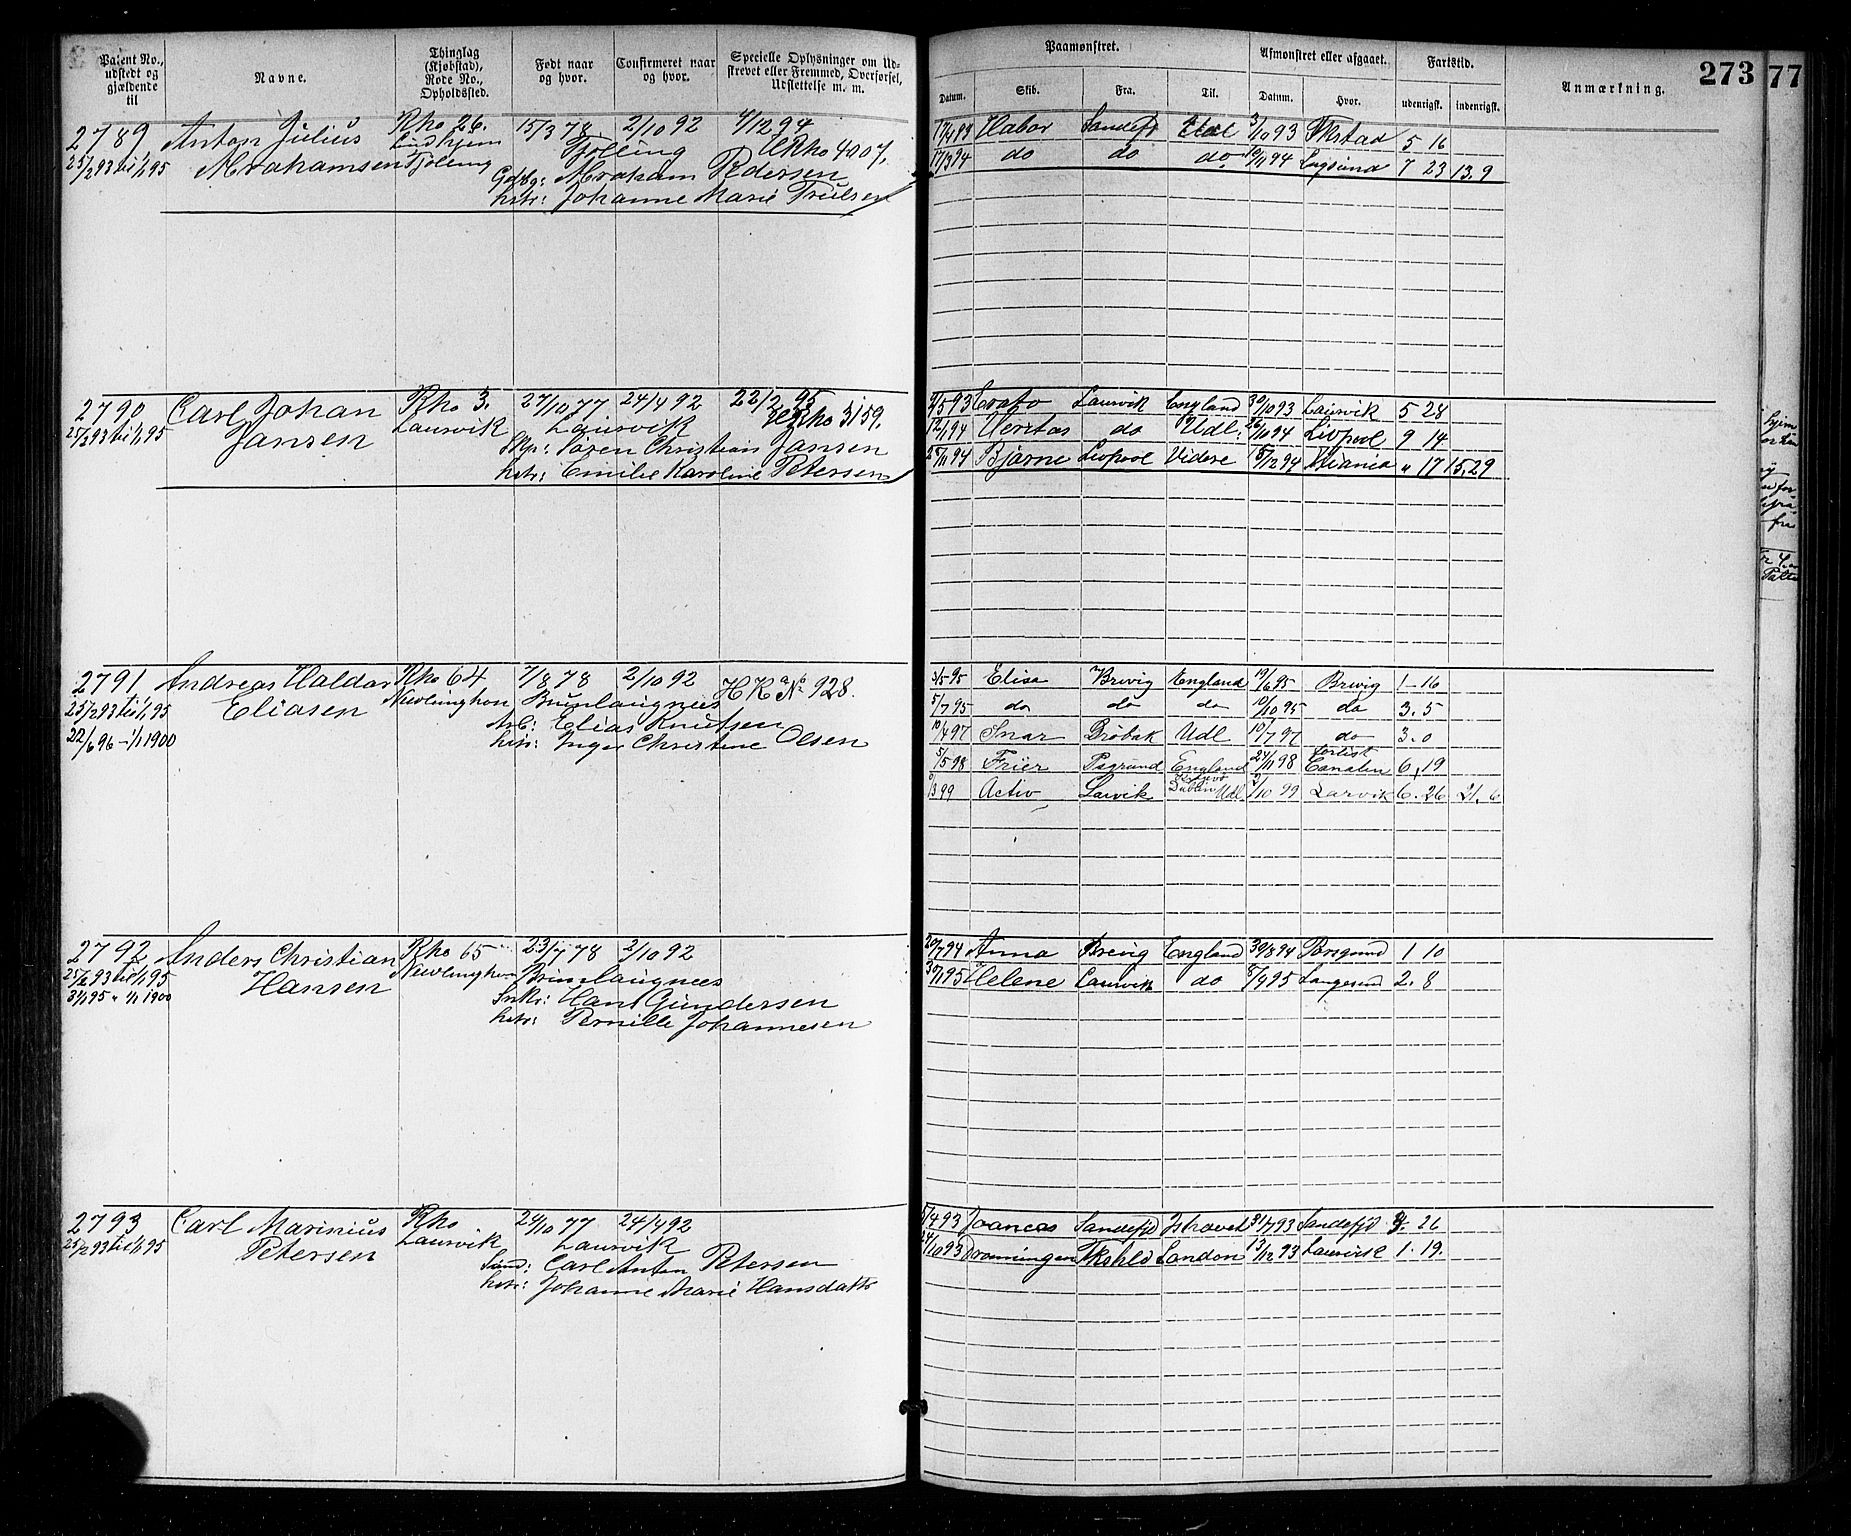 Patent No., udstedt og gjældende til
Navne.
Thinglag (Kjøbstad), Rode No., Opholdssted.
Født naar og hvor.
Confirmeret naar og hvor.
Specielle Oplysninger om Udstrevet eller Fremmed, Overførsel, Udslettelse m. m.
Paamønstret.
Datum.
Skib.
Fra.
Til.
Afmønstret eller afgaaet.
Datum.
Hvor.
Fartstid.
udenrigsk.
indenrigsk.
Anmærkning.
273
77
2789 Anton Julius Rho 26. 15/3 78 2/10 92 4/12 94
25/2 93 til 1/1 95 Abrahamsen Tjølling Tjølling URho 4007.
Gdbg: Abraham Pedersen
hstr: Johanne Marie Trulsen
17/4 93 Habor Sandefj Udl 3/10 93 Fkstad 5 16
17/3 94 do do do 10/11 94 Lngsund 7 23 13.9
2790 Carl Johan Rho 3. 27/10 77 24/4 92 22/2 95
25/2 93 til 1/1 95 Jansen Laurvik Laurvik URho 3159.
Skp: Søren Christian Jansen
hstr: Emilie Karoline Petersen
Erato Laurvik England 30/10 93 Laurvik 5 28
12/1 94 Veritas do Udl: 26/10 94 Livpool 9 14
25/11 94 Bjørne Livpool Videre 15/12 94 " 17 15.29
2791 Andreas Haldor Rho 64 7/8 78 2/10 92 H K a No 928.
25/2 93 til 1/1 95 Eliasen Nevlunghvn Brunlaugnæs
22/6 96 - 1/1 1900 Arb: Elias Knutsen
hstr: Inger Christine Olsen
3/5 95 Elisa Brevig England 19/6 95 Brevig 1-16
5/7 95 do do do 10/10 95 do 3.5
10/4 97 Snar Drøbak Udl 10/7 97 do 3.0
5/5 98 Frier Psgrund England 24/11 98 Canalen 6,19
Activ Larvik Dublin Udl 10 99 Larvik 6.26 21.6
2792 Anders Christian Rho 65 23/7 78 2/10 92
25/2 93 til 1/1 95 Hansen Nevlunghvn Brunlaugnæs
31/1 95 " 1/1 1900 Snkr: Hans Gundersen
hstr: Pernille Johannesen
20/7 94 Anna Brevig England 30/8 94 Porsgrund 1 10
30/1 95 Helene Laurvik do 8/9 95 Langesund 2.8
2793 Carl Marinius Rho 24/10 77 24/4 92
25/2 93 til 1/1 95 Petersen Laurvik Laurvik
Carl Anton Petersen
hstr: Johanne Marie Hansdattr
5/4 93 Sandefjd Ishavet 31/7 93 Sandefjd 26
24/10 93 Dronningen Fkshld London 13/12 93 Laurvik 1.19.